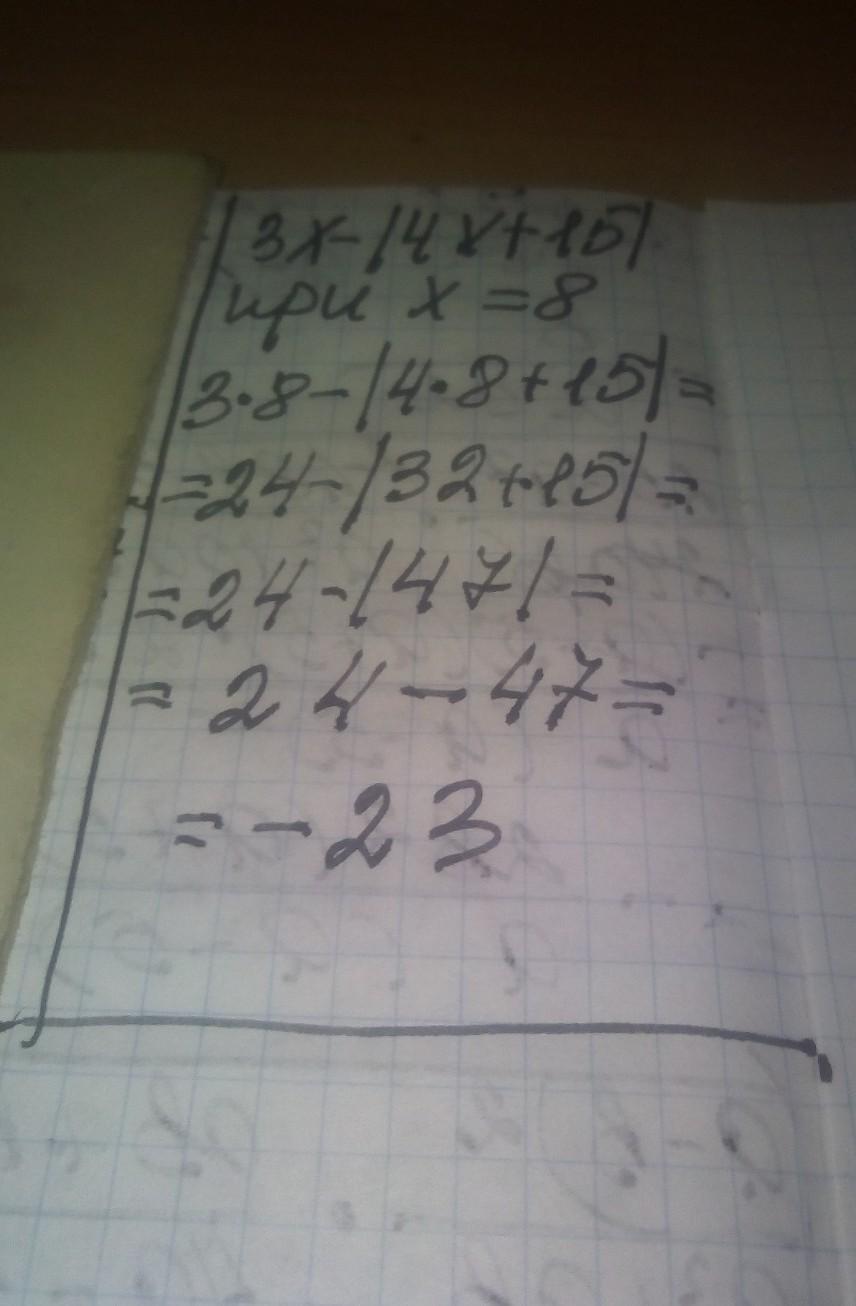 3x-|4x+15|
при x=8
3·8-|4·8+15|=
=24-|32+15|=
=24-|47|=
=24-47=
=-23